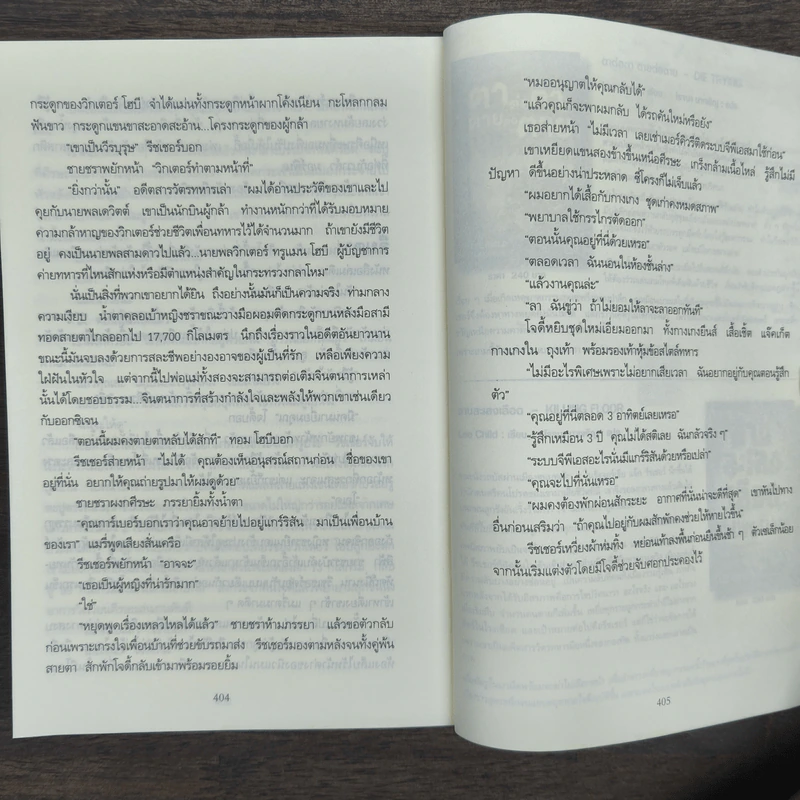 กระดูกของวิกเตอร์ โฮบี จำได้แม่นทั้งกระดูกหน้าผากโค้งเนียน กะโหลกกลม
ฟันขาว กระดูกแขนขาสะอาดสะอ้าน...โครงกระดูกของผู้กล้า
“เขาเป็นวีรบุรุษ” รีชเชอร์บอก
ชายชราพยักหน้า “วิกเตอร์ทำตามหน้าที่”
“ยิ่งกว่านั้น” อดีตสารวัตรทหารเล่า “ผมได้อ่านประวัติของเขาและไป
คุยกับนายพลเดวิตต์ เขาเป็นนักบินผู้กล้า ทำงานหนักกว่าที่ได้รับมอบหมาย
ความกล้าหาญของวิกเตอร์ช่วยชีวิตเพื่อนทหารไว้ได้จำนวนมาก ถ้าเขายังมีชีวิต
อยู่ คงเป็นนายพลสามดาวไปแล้ว...นายพลวิกเตอร์ ทรูแมน โฮบี ผู้บัญชาการ
ค่ายทหารที่ไหนสักแห่งหรือมีตำแหน่งสำคัญในกระทรวงกลาโหม”
นั่นเป็นสิ่งที่พวกเขาอยากได้ยิน ถึงอย่างนั้นมันก็เป็นความจริง ท่ามกลาง
ความเงียบ น้ำตาคลอเบ้าหญิงชราขณะวางมือผอมติดกระดูกบนหลังมือสามี
ทอดสายตาไกลออกไป 17,700 กิโลเมตร นึกถึงเรื่องราวในอดีตอันยาวนาน
ขณะนี้มันจบลงด้วยการสละชีพอย่างองอาจของผู้เป็นที่รัก เหลือเพียงความ
ใฝ่ฝันในหัวใจ แต่จากนี้ไปพ่อแม่ทั้งสองจะสามารถต่อเติมจินตนาการเหล่า
นั้นได้โดยชอบธรรม...จินตนาการที่สร้างกำลังใจและพลังให้พวกเขาเช่นเดียว
กับออกซิเจน
“ตอนนี้ผมคงตายตาหลับได้สักที” ทอม โฮบีบอก
รีชเชอร์ส่ายหน้า “ไม่ได้ คุณต้องเห็นอนุสรณ์สถานก่อน ชื่อของเขา
อยู่ที่นั่น อยากให้คุณถ่ายรูปมาให้ผมดูด้วย”
ชายชราผงกศีรษะ ภรรยายิ้มทั้งน้ำตา
“คุณการ์เบอร์บอกเราว่าคุณอาจย้ายไปอยู่แกร์ริสัน มาเป็นเพื่อนบ้าน
ของเรา” แมรี่พูดเสียงสั่นเครือ
รีชเชอร์พยักหน้า “อาจจะ”
“เธอเป็นผู้หญิงที่น่ารักมาก”
“ใช่”
“หยุดพูดเรื่องเหลวไหลได้แล้ว” ชายชราห้ามภรรยา แล้วขอตัวกลับ
ก่อนเพราะเกรงใจเพื่อนบ้านที่ช่วยขับรถมาส่ง รีชเชอร์มองตามหลังจนทั้งคู่พ้น
สายตา สักพักโจดี้กลับเข้ามาพร้อมรอยยิ้ม
404
“หมออนุญาตให้คุณกลับได้”
“แล้วคุณก็จะพาผมกลับ ได้รถคันใหม่หรือยัง”
เธอส่ายหน้า “ไม่มีเวลา เลยเช่าเมอร์คิวรีติดระบบจีพีเอสมาใช้ก่อน”
เขาเหยียดแขนสองข้างขึ้นเหนือศีรษะ เกร็งกล้ามเนื้อไหล่ รู้สึกไม่มี
ปัญหา ดีขึ้นอย่างน่าประหลาด ซี่โครงก็ไม่เจ็บแล้ว
“ผมอยากได้เสื้อกับกางเกง ชุดเก่าคงหมดสภาพ”
“พยาบาลใช้กรรไกรตัดออก”
“ตอนนั้นคุณอยู่ที่นี่ด้วยเหรอ”
“ตลอดเวลา ฉันนอนในห้องชั้นล่าง”
“แล้วงานคุณล่ะ”
“ลา ฉันขู่ว่า ถ้าไม่ยอมให้ลาจะลาออกทันที”
โจดี้หยิบชุดใหม่เอี่ยมออกมา ทั้งกางเกงยีนส์ เสื้อเชิ้ต แจ็คเก็ต
กางเกงใน ถุงเท้า พร้อมรองเท้าหุ้มข้อสไตล์ทหาร
“ไม่มีอะไรพิเศษเพราะไม่อยากเสียเวลา ฉันอยากอยู่กับคุณตอนรู้สึก
ตัว”
“คุณอยู่ที่นี่ตลอด 3 อาทิตย์เลยเหรอ”
“รู้สึกเหมือน 3 ปี คุณไม่ได้สติเลย ฉันกลัวจริง ๆ”
“ระบบจีพีเอสอะไรนั่นมีแกร์ริสันด้วยหรือเปล่า”
“คุณจะไปที่นั่นเหรอ”
“ผมคงต้องพักผ่อนสักระยะ อากาศที่นั่นน่าจะดีที่สุด” เขาหันไปทาง
อื่นก่อนเสริมว่า “ถ้าคุณไปอยู่กับผมสักพักคงช่วยให้หายไวขึ้น”
รีชเชอร์เหวี่ยงผ้าห่มทิ้ง หย่อนเท้าลงพื้นก่อนยืนขึ้นช้า ๆ ตัวเซเล็กน้อย
จากนั้นเริ่มแต่งตัวโดยมีโจดี้ช่วยจับศอกประคองไว้
405